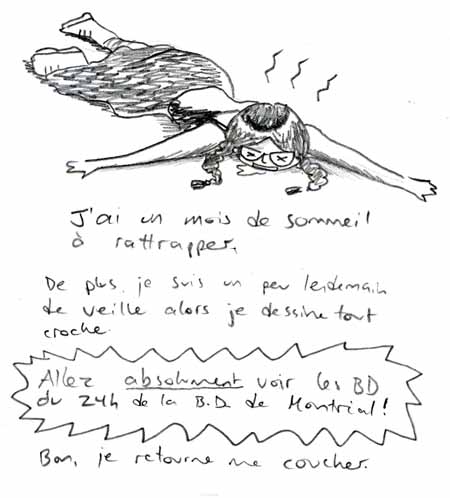 J'ai un mois de sommeil
à rattrapper.
De plus, je suis un peu lendemain
de veille alors je dessine tout
croche.
Allez absolument voir les BD
du 24h de la B.D. de Montréal!
Bon, je retourne me coucher.